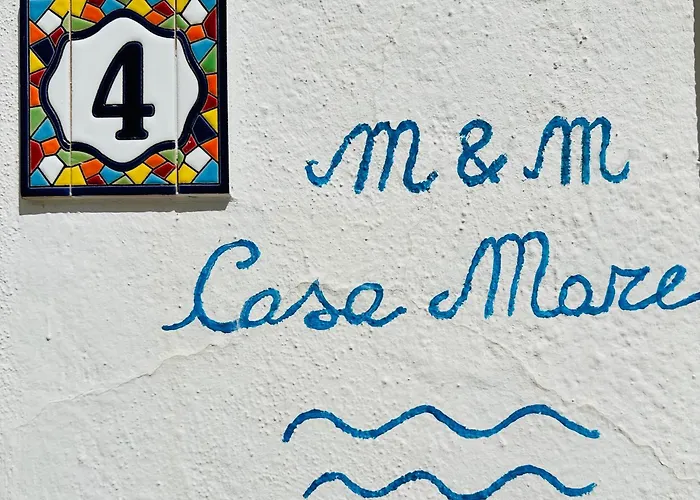 4
M & M
Casa Mare